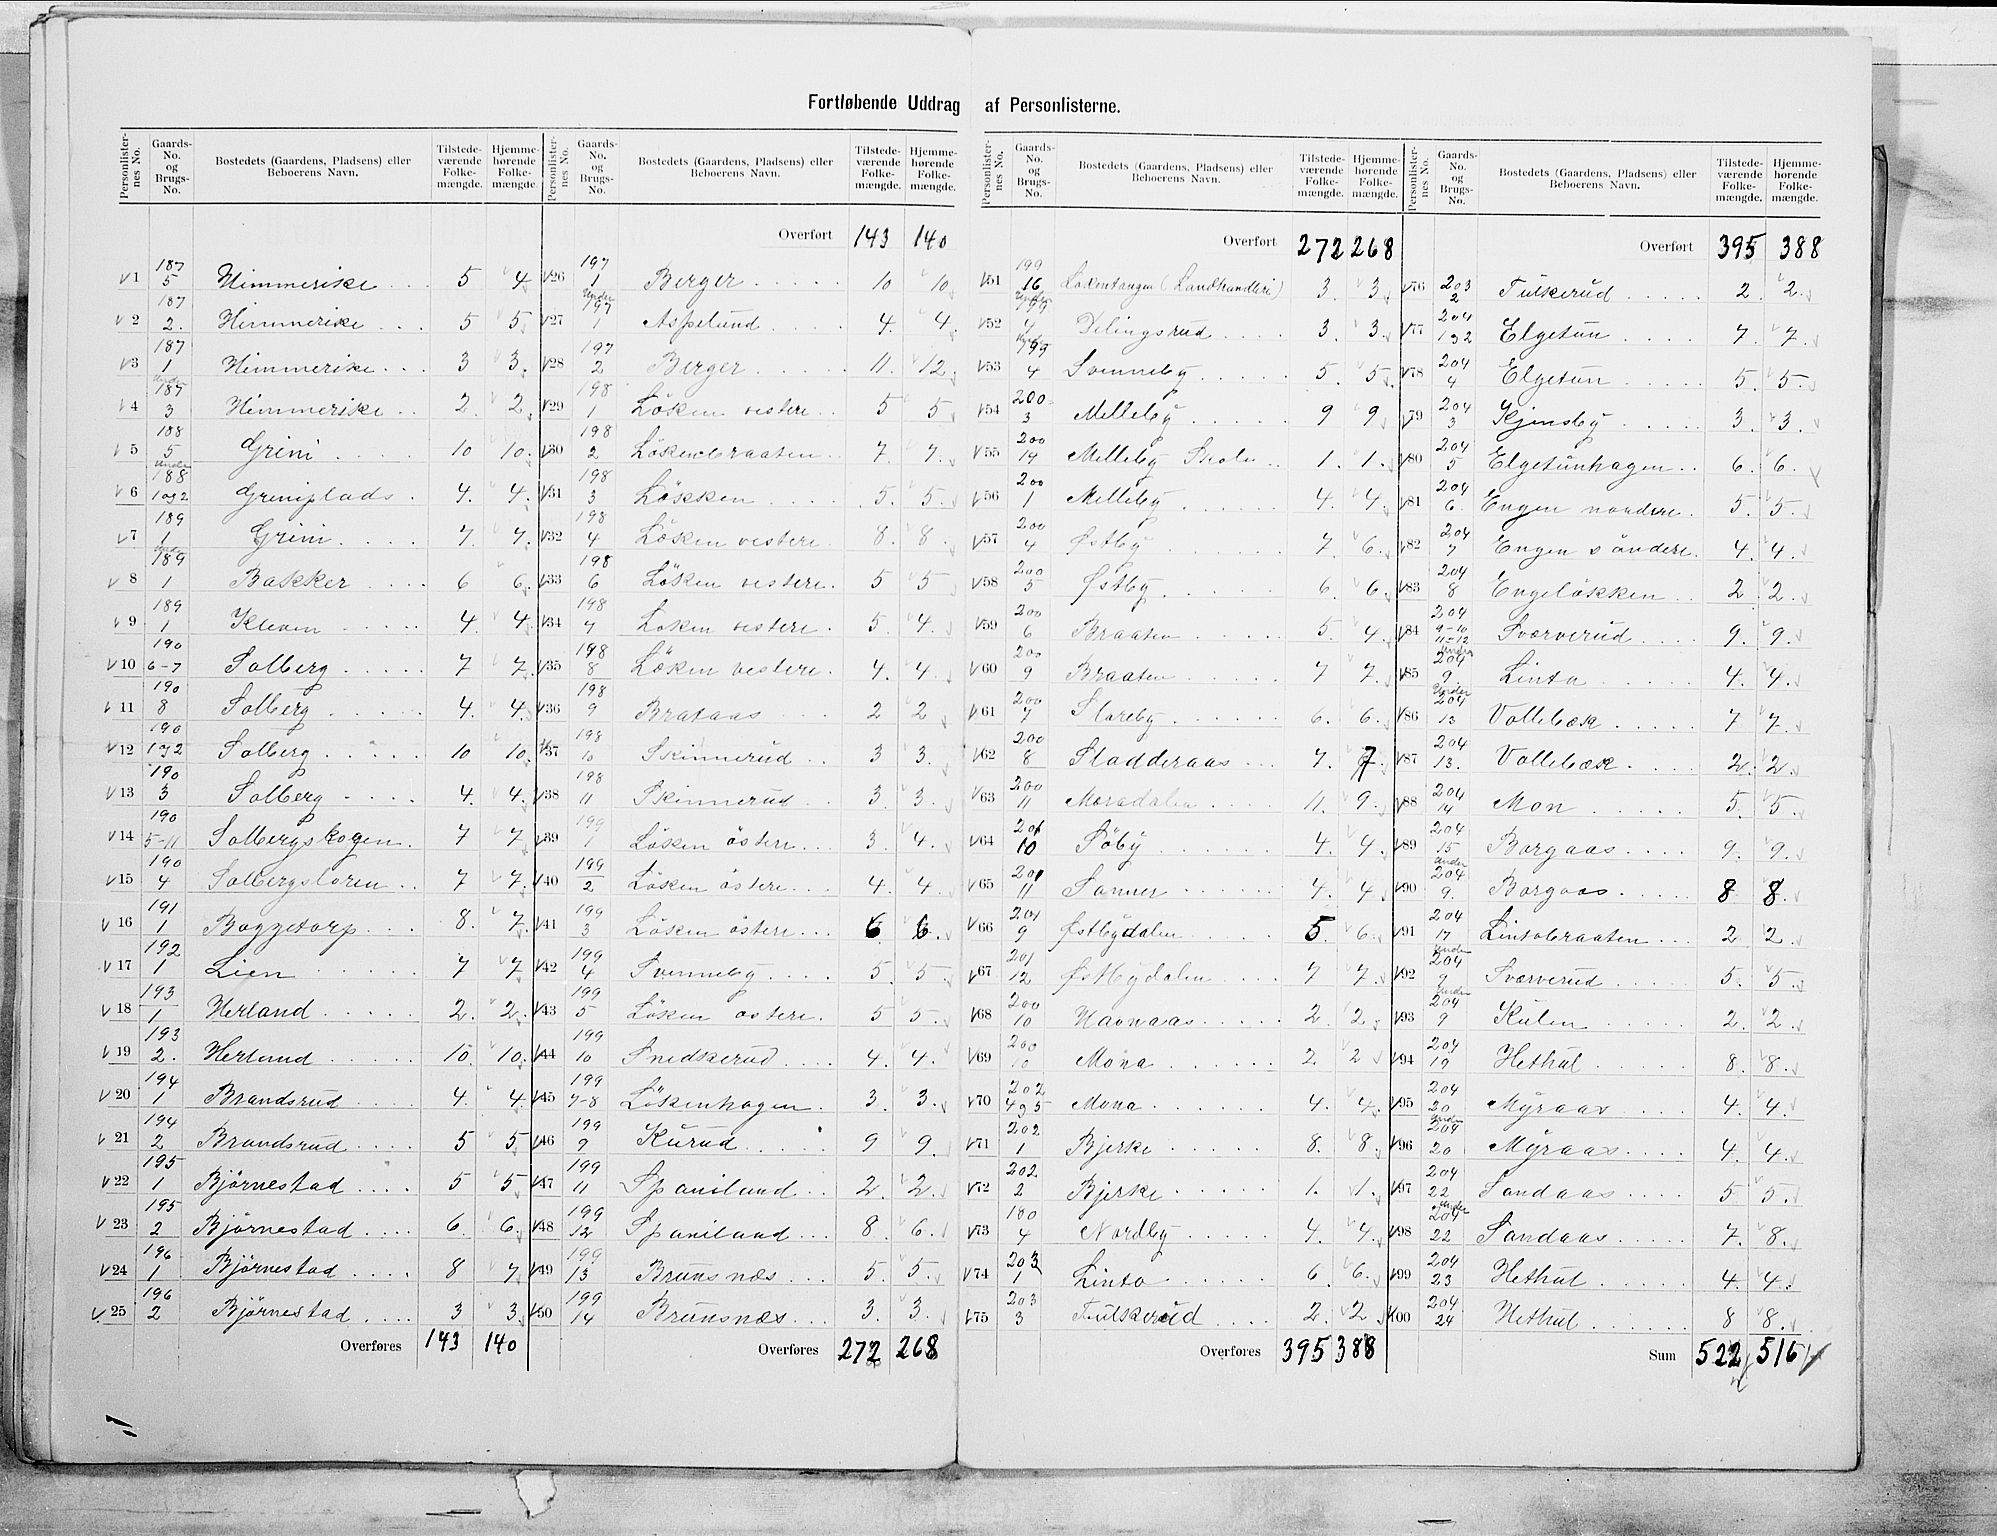 Fortløbende Uddrag af Personlisterne.
Personlisternes No. Gaards-No. og Brugs-No. Bostedets (Gaardens, Pladsens) eller Beboerens Navn. Tilstedeværende Folkemængde. Hjemmehørende Folkemængde.
1 187 5 Himmerike 5 4
2 187 2. Himmerike 5 5
3 187 1 Himmerike 3 3.
4 Under 187 3 Himmerike 2. 2
5 188 5 Grini 10 10.
6 Under 188 1 og 2 Griniplads 4. 4.
7 189 1 Grini 7 7.
8 Under 189 1 Bakker 6 6.
9 189 1 Kleven 4. 4.
10 190 6-7 Solberg 7 7.
11 190 8 Solberg 4. 4.
12 190 1 g 2 Solberg 10 10.
13 190 3 Solberg 4. 4.
14 190 5-11 Solbergskogen 7 7.
15 190 4 Solbergsloren 7 7.
16 191 1 Baggetorp 8. 7.
17 192 1 Lien 7 7
18 193 1 Herland 2. 2.
19 193 2. Herland 10. 10.
20 194 1 Brandsrud 4. 4.
21 194 2 Brandsrud 5 5.
22 195 1 Björnestad 5 5
23 195 2 Björnestad 6. 6.
24 196 1 Björnestad 8 7
25 196 2 Björnestad 3 3.
Overføres 143 140
Personlisternes No. Gaards-No. og Brugs-No. Bostedets (Gaardens, Pladsens) eller Beboerens Navn. Tilstedeværende Folkemængde. Hjemmehørende Folkemængde.
Overført 143 140
26 197 1 Berger 10 10
27 Under 197 1 Aspelund 4. 4.
28 197 2 Berger 11. 12.
29 198 1 Löken vestere 5 5
30 198 2 Lökenbraaten 7. 7.
31 198 3 Lökken 5. 5.
32 198 4 Löken vestere 8. 8.
33 198 6 Löken vestere 5 5
34 198 7 Löken vestere 5. 4.
35 198 8 Löken vestere 4. 4.
36 198 9 Brataas 2 2
37 198 10 Skinnerud 3 3.
38 198 11 Skinnerud 3. 3.
39 199 1 Löken östere 3. 4.
40 199 2 Löken östere 4. 4.
41 199 3 Löken östere 6 6.
42 199 4 Svenneby 5. 5.
43 199 5 Löken östere 5 5.
44 199 10 Snedkerud 4. 4.
45 199 7-8 Lökenhagen 3. 3.
46 199 9 Kurud 9 9.
47 199 11 Spaniland 2. 2.
48 199 12 Spaniland 8. 6.
49 199 13 Brunsnæs 5. 5.
50 199 14 Brunsnæs 3. 3.
Overføres 272 268
Personlisternes No. Gaards-No. og Brugs-No. Bostedets (Gaardens, Pladsens) eller Beboerens Navn. Tilstedeværende Folkemængde. Hjemmehørende Folkemængde.
Overført 272 268
51 199 16 Lökentangen (Landhandleri) 3. 3.
52 Under 199 4 Delingsrud 3. 3.
53 Under 199 4 Svenneby 5. 5.
54 200 3 Melleby 9 9.
55 200 14 Melleby Skole 1. 1.
56 200 1 Melleby 4. 4.
57 200 4 Østby 7 6.
58 200 5 Østby 6. 6.
59 200 6 Braaten 5. 4.
60 200 9 Braaten 7 7.
61 200 7 Slareby 6. 6.
62 200 8 Sladderaas 7. 7
63 200 11 Mosedalen 11. 9.
64 201 10 Söby 4. 4.
65 201 11 Sanner 4. 4.
66 201 9 Østbydalen 5. 6.
67 201 12 Østbydalen 7 7.
68 200 10 Havnaas 2. 2.
69 200 10 Mona 2. 2
70 202 4 g 5 Mona 4. 4.
71 202 1 Bjerke 8. 8.
72 202 2 Bjerke 1. 1.
73 180 4 Nordby 4. 4.
74 203 1 Linto 6. 6.
75 203 3 Tulskerud 2. 2
Overføres 395 388
Personlisternes No. Gaards-No. og Brugs-No. Bostedets (Gaardens, Pladsens) eller Beboerens Navn. Tilstedeværende Folkemængde. Hjemmehørende Folkemængde.
Overført 395 388
76 203 2 Tulskerud 2. 2.
77 204 1 g 2 Elgetun 7. 7.
78 204 4 Elgetun 5. 5.
79 204 3 Kjensby 3. 3.
80 204 5 Elgetunhagen 6. 6.
81 204 6. Engen nordere 5. 5.
82 204 7 Engen söndere 4. 4.
83 204 8 Engelökken 2. 2.
84 204 9-10 11-12 Sværverud 9. 9.
85 Under 204 9. Linto 4. 4.
86 Under 204 13 Vollebæk 7 7.
87 204 13. Vollebæk 2. 2.
88 204 14 Mon 5. 5
89 204 15 Borgaas 9. 9.
90 Under 204 9. Borgaas 8 8.
91 204 17 Lintobraaten 2 2.
92 Under 204 9 Sværverud 5. 5
93 Under 204 9 Kulen 2. 2.
94 204 19 Hethul 8. 8.
95 204 20 Myraas 4. 4.
96 Under 204 20 Myraas 4. 4.
97 204 22 Sandaas 5 5.
98 Under 204 22 Sandaas 7. 8.
99 204 23 Hethul 4. 4.
100 204 24 Hethul 8 8.
Sum 522 516